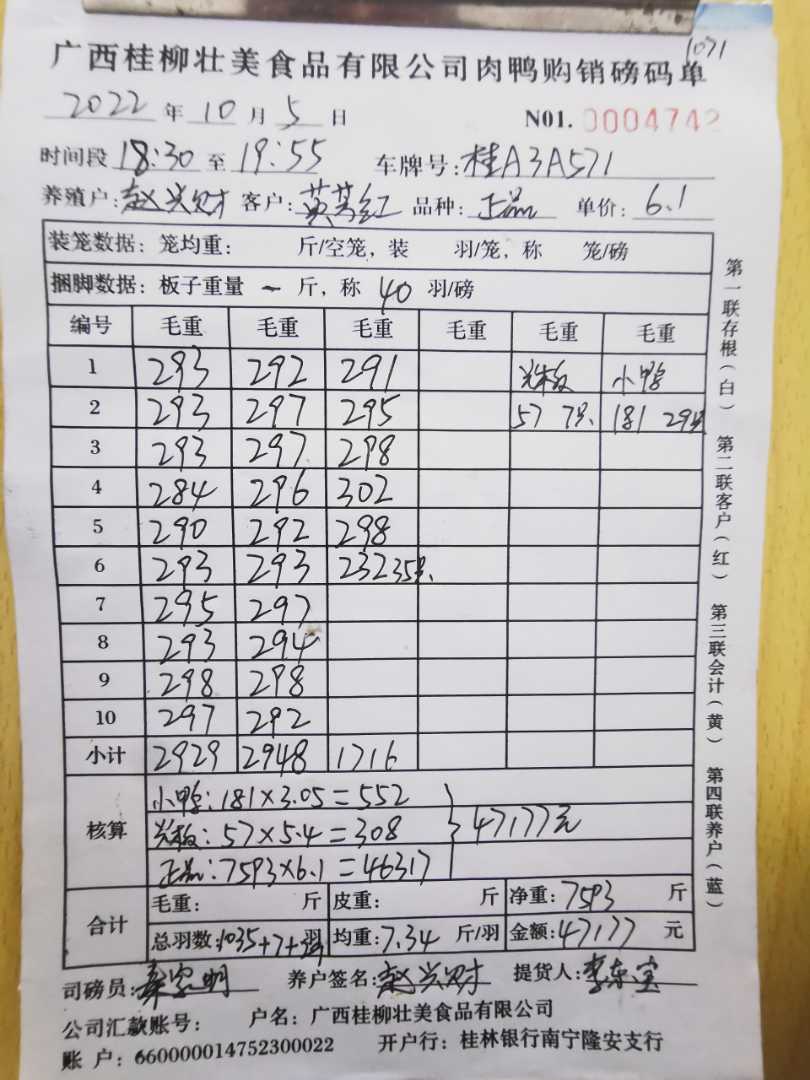 1071
广西桂柳壮美食品有限公司肉鸭购销磅码单
2022年10月5日 N01.0004742
时间段18:30至19:55 车牌号:桂A3A571
养殖户:赵兴财 客户:黄其红 品种:正品 单价:6.1
装笼数据:笼均重: 斤/空笼,装 羽/笼,称 笼/磅
捆脚数据:板子重量 - 斤,称 40 羽/磅
编号 毛重 毛重 毛重 毛重 毛重 毛重
1 293 292 291 光板 小鸭
2 293 297 295 57 7只 181 29只
3 293 297 298
4 284 296 302
5 290 292 298
6 293 293 232 35只
7 295 297
8 293 294
9 298 298
10 297 292
小计 2929 2948 1716
核算 小鸭:181×3.05=552
光板:57×5.4=308 47177元
正品:7593×6.1=46317
合计 毛重: 斤 皮重: 斤 净重:7593 斤
总羽数:1035+7+29羽 均重:7.34 斤/羽 金额:47177 元
司磅员:秦家明 养户签名:赵兴财 提货人:李东宝
公司汇款账号: 户名:广西桂柳壮美食品有限公司
账 户:660000014752300022 开户行:桂林银行南宁隆安支行
第一联存根(白) 第二联客户(红) 第三联会计(黄) 第四联养户(蓝)